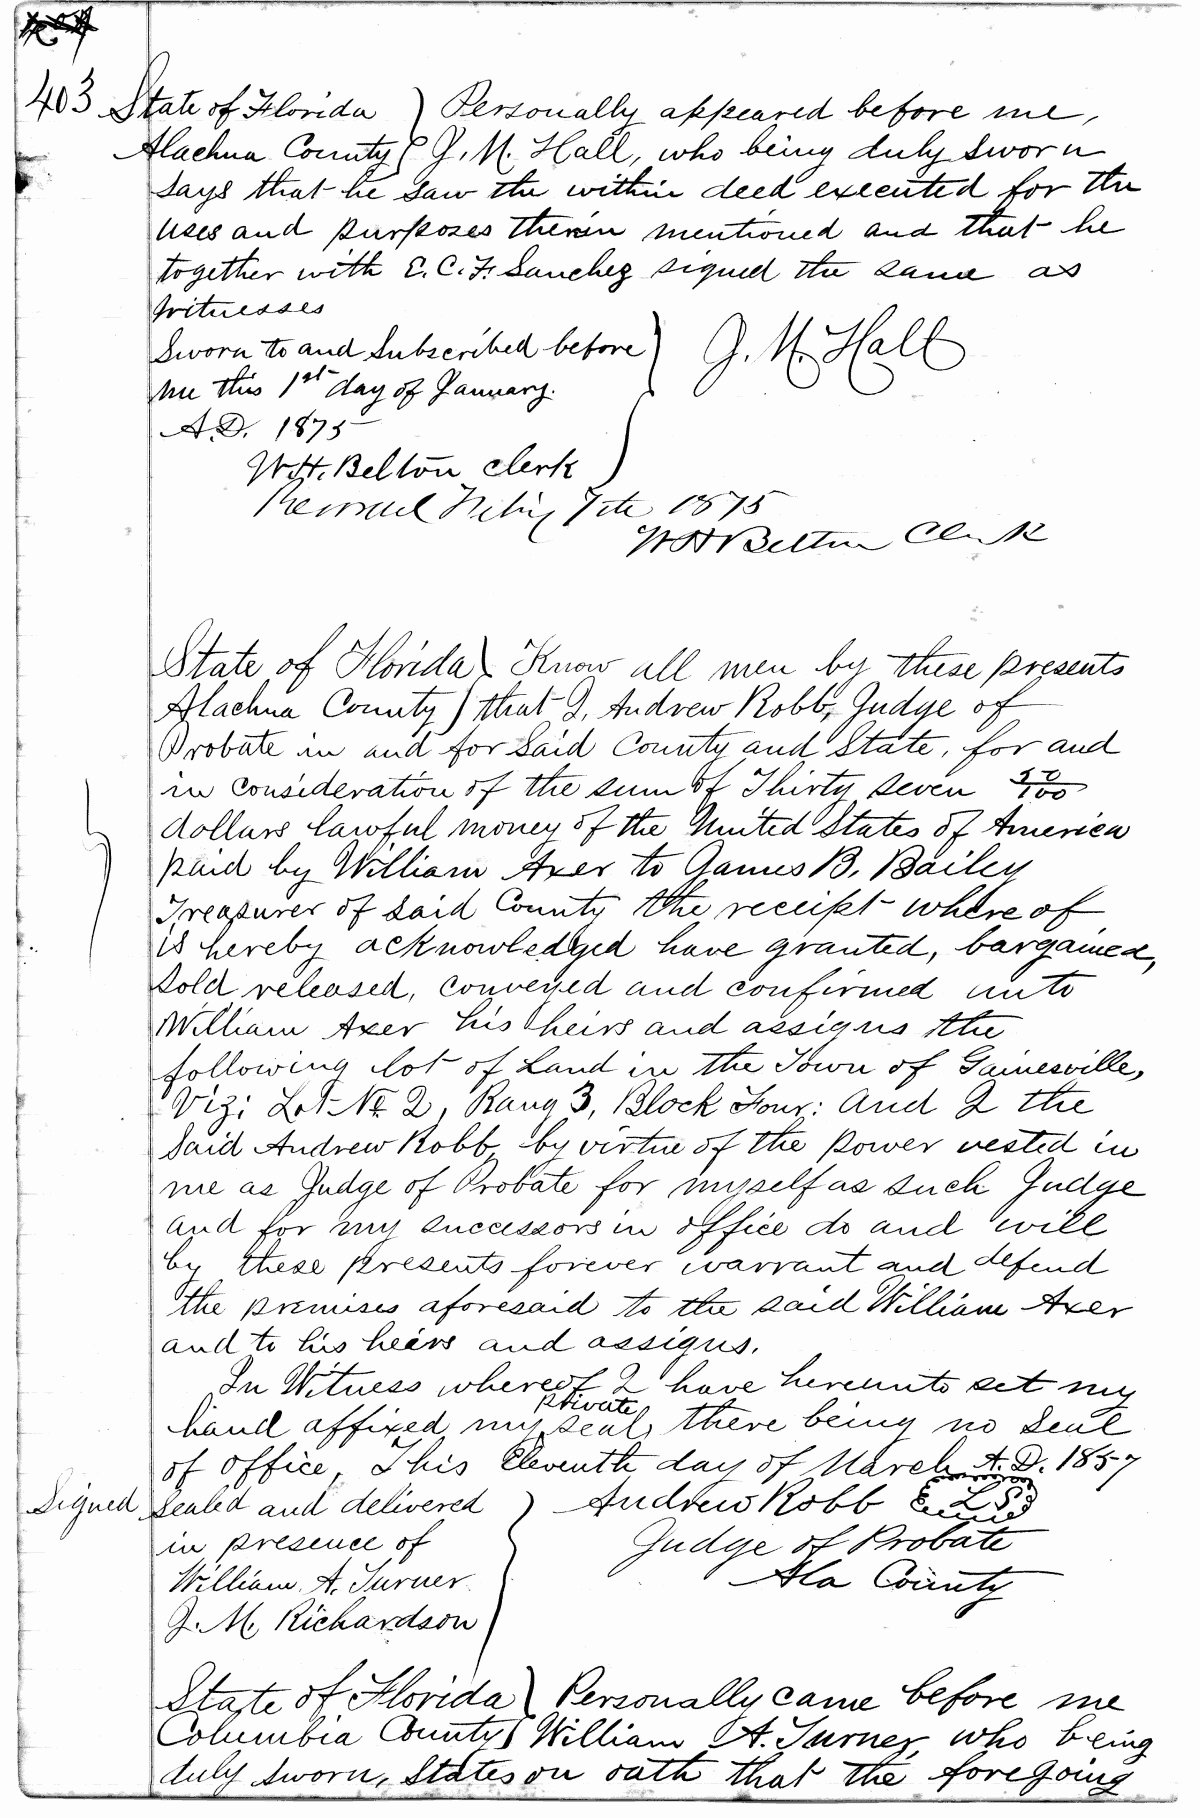 403 State of Florida ) Personally appeared before me,
Alachua County ( J. M. Hall, who being duly sworn
says that he saw the within deed executed for the
uses and purposes therein mentioned and that he
together with E. C. F. Sanchez signed the same as
witnesses
Sworn to and Subscribed before ) J. M. Hall
me this 1st day of January.
A.D. 1875
W.H. Belton Clerk
7th 1875
W H Belton Clerk
State of Florida ) Know all men by these presents
Alachua County ) that I, Andrew Robb, Judge of
Probate in and for Said County and State, for and
in consideration of the sum of Thirty seven 50/100
dollars lawful money of the United States of America
paid by William Axer to James B. Bailey
Treasurer of said County the receipt where of
is hereby acknowledged have granted, bargained,
sold released, conveyed and confirmed unto
William Axer his heirs and assigns the
following lot of Land in the Town of Gainesville,
Viz: Lot No 2, Rang 3, Block Four: And I the
Said Andrew Robb, by virtue of the power vested in
me as Judge of Probate for myself as such Judge
and for my successors in office do and will
by these presents forever warrant and defend
the premises aforesaid to the said William Axer
and to his heirs and assigns.
In Witness whereof I have hereunto set my
hand affixed my private seal, there being no Seal
of office, This Eleventh day of March A.D. 1857
Signed Sealed and delivered ) Andrew Robb L S
in presence of Judge of Probate
William A. Turner Ala County
J. M. Richardson
State of Florida ) Personally came before me
Columbia County ( William A. Turner, who being
duly sworn, States on oath that the foregoing